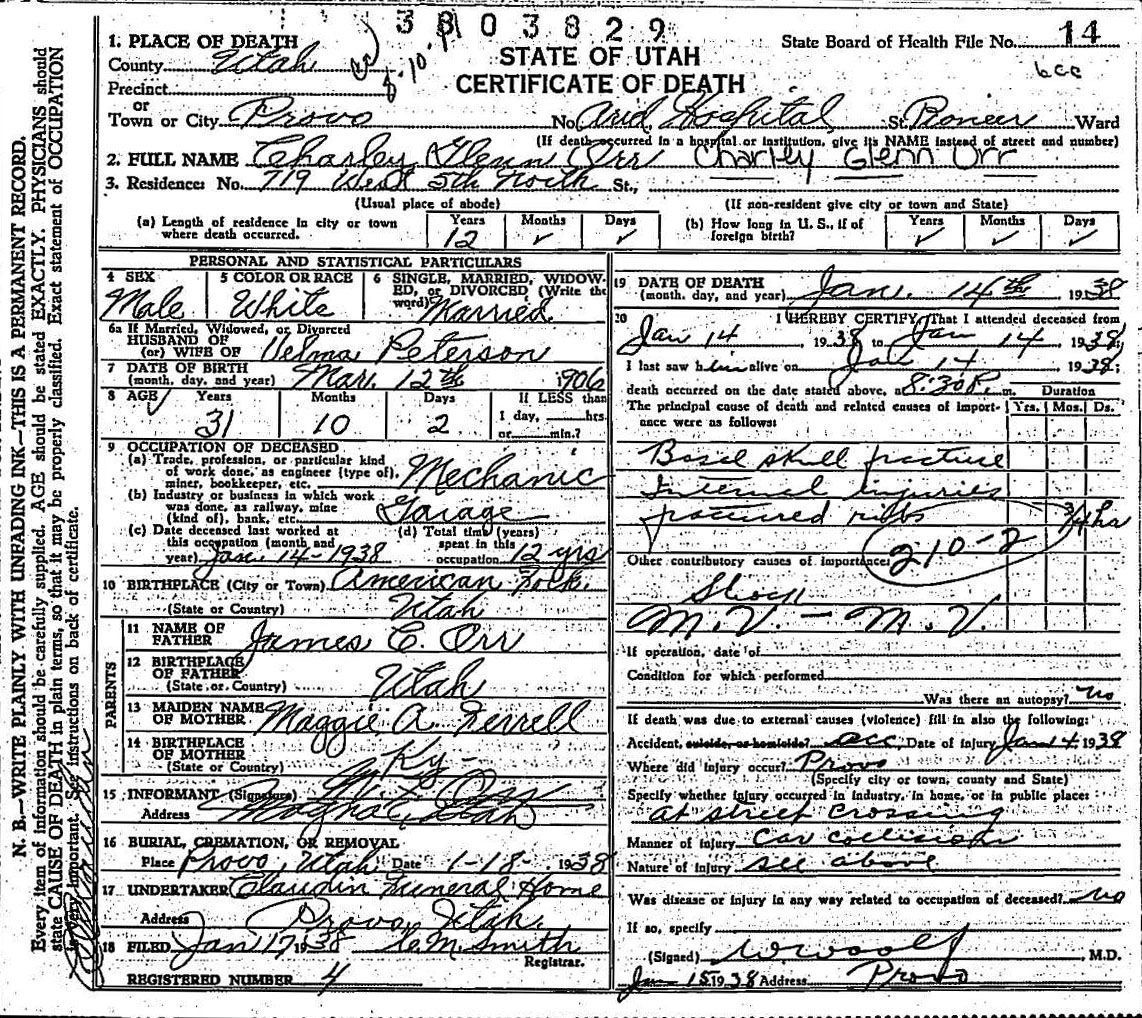 3803829
1. PLACE OF DEATH
County Utah
Precinct
or
Town or City Provo
STATE OF UTAH
CERTIFICATE OF DEATH
State Board of Health File No. 14
No. Hospital St. Pioneer Ward
(If death occurred in a hospital or institution, give its NAME instead of street and number)
2. FULL NAME Charley Glenn Orr Charley Glenn Orr
3. Residence: No. 719 West 5th North St.,
(Usual place of abode) (If non-resident give city or town and State)
(a) Length of residence in city or town where death occurred. Years 12 Months ✓ Days ✓
(b) How long in U. S., if of foreign birth? Years ✓ Months ✓ Days ✓
PERSONAL AND STATISTICAL PARTICULARS
4 SEX Male
5 COLOR OR RACE White
6 SINGLE, MARRIED, WIDOWED, or DIVORCED (Write the word) Married
6a If Married, Widowed, or Divorced
HUSBAND OF
(or) WIFE OF Velma Peterson
7 DATE OF BIRTH
(month, day, and year) Mar. 12th 1906
8 AGE Years 31 Months 10 Days 2
If LESS than
1 day, hrs.
or min.?
9 OCCUPATION OF DECEASED
(a) Trade, profession, or particular kind
of work done, as engineer (type of),
miner, bookkeeper, etc. Mechanic
(b) Industry or business in which work
was done, as railway, mine
(kind of), bank, etc. Garage
(c) Date deceased last worked at
this occupation (month and
year) Jan. 14-1938
(d) Total time (years)
spent in this
occupation 12 yrs
10 BIRTHPLACE (City or Town) American Fork
(State or Country) Utah
PARENTS
11 NAME OF
FATHER James C. Orr
12 BIRTHPLACE
OF FATHER
(State or Country) Utah
13 MAIDEN NAME
OF MOTHER Maggie A. Ferrell
14 BIRTHPLACE
OF MOTHER
(State or Country) Ky-
15 INFORMANT (Signature) Orr
Address Magna, Utah
16 BURIAL, CREMATION, OR REMOVAL
Place Provo, Utah Date 1-18- 1938
17 UNDERTAKER Claudin Funeral Home
Address Provo, Utah.
18 FILED Jan 17 1938 M Smith
Registrar.
REGISTERED NUMBER 4
19 DATE OF DEATH
(month, day, and year) Jan. 14th 1938
20 I HEREBY CERTIFY, That I attended deceased from
Jan 14 1938 to Jan 14 1938
I last saw him alive on Jan 14 1938;
death occurred on the date stated above, at 8:30 P. m. Duration
The principal cause of death and related causes of importance were as follows: Yrs. Mos. Ds.
Basal skull fracture
Internal injuries
fractured ribs 3/4 hr
210-2
Other contributory causes of importance:
Shock
M. V. - M. V.
If operation, date of
Condition for which performed
Was there an autopsy? no
If death was due to external causes (violence) fill in also the following:
Accident, suicide, or homicide? acc. Date of injury Jan 14 1938
Where did injury occur? Provo
(Specify city or town, county and State)
Specify whether injury occurred in industry, in home, or in public place:
at street crossing
Manner of injury Car collision
Nature of injury see above
Was disease or injury in any way related to occupation of deceased? no
If so, specify
(Signed) W. Woolf, M.D.
Jan 15 1938 Address Provo
N. B.—WRITE PLAINLY WITH UNFADING INK—THIS IS A PERMANENT RECORD.
Every item of information should be carefully supplied. AGE should be stated EXACTLY. PHYSICIANS should
state CAUSE OF DEATH in plain terms, so that it may be properly classified. Exact statement of OCCUPATION
is very important. See instructions on back of certificate.